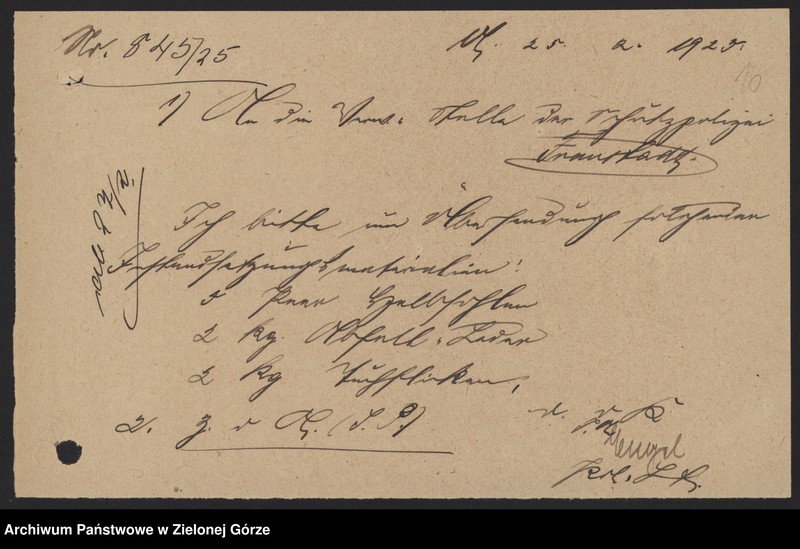 Nr. 845/25
25. 2. 1925.
1) An die Verw.-Stelle der Schutzpolizei
Fraustadt.
Ich bitte um Übersendung folgender
Instandsetzungsmaterialien:
5 Paar Halbsohlen
2 kg. Abfall-Leder
2 kg Tuchflicken,
2. Z. d. A. (S. P.)
Mengel
Pol.
Archiwum Państwowe w Zielonej Górze